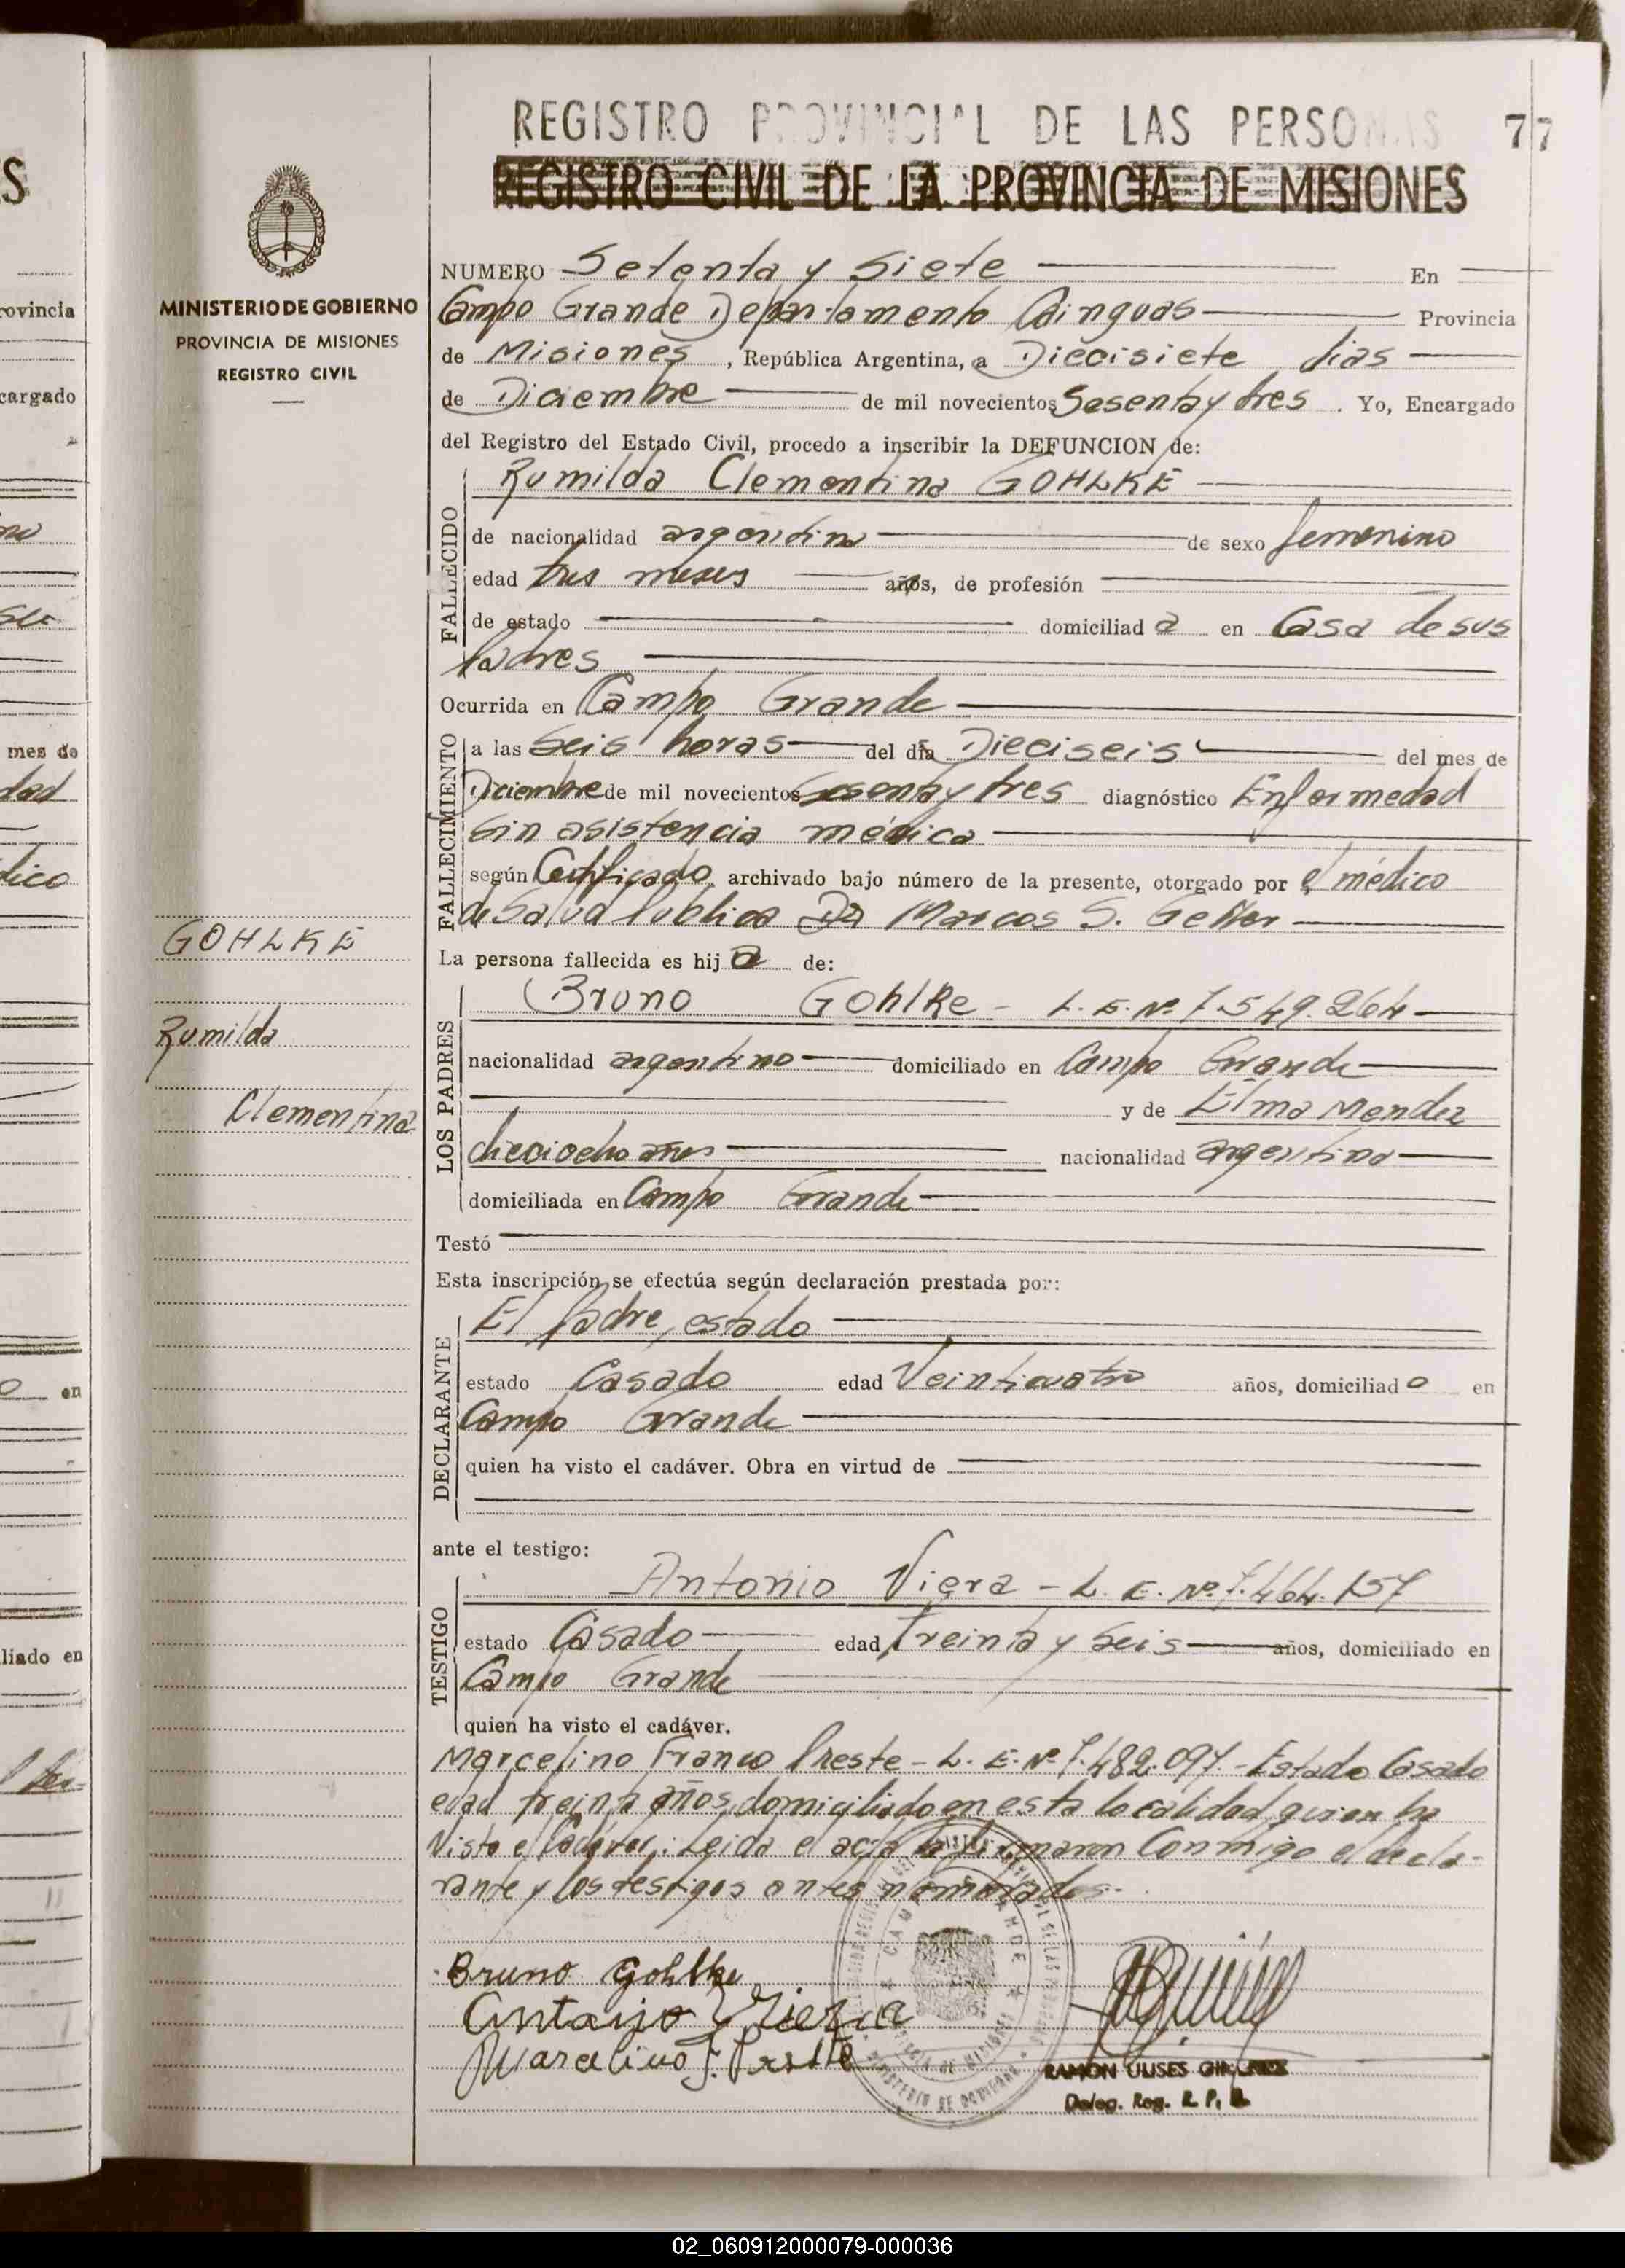 REGISTRO PROVINCIAL DE LAS PERSONAS 77
REGISTRO CIVIL DE LA PROVINCIA DE MISIONES
MINISTERIO DE GOBIERNO
PROVINCIA DE MISIONES
REGISTRO CIVIL
NUMERO Setenta y Siete En
Campo Grande Departamento Cainguas Provincia
de Misiones, República Argentina, a Diecisiete dias
de Diciembre de mil novecientos Sesenta y tres. Yo, Encargado
del Registro del Estado Civil, procedo a inscribir la DEFUNCION de:
FALLECIDO
Rumilda Clementina GOHLKE
de nacionalidad argentina de sexo femenino
edad tres meses años, de profesión
de estado domiciliada en Casa de sus
Padres
Ocurrida en Campo Grande
FALLECIMIENTO
a las Seis horas del día Dieciseis del mes de
Diciembre de mil novecientos Sesenta y tres diagnóstico Enfermedad
Sin asistencia médica
según Certificado archivado bajo número de la presente, otorgado por el médico
de Salud Publica Dr Marcos S.
GOHLKE
Rumilda
Clementina
La persona fallecida es hija de:
LOS PADRES
Bruno Gohlke - L. E. Nº 7.549.264
nacionalidad argentino domiciliado en Campo Grande
y de Elma Mendez
dieciocho años nacionalidad argentina
domiciliada en Campo Grande
Testó
Esta inscripción se efectúa según declaración prestada por:
DECLARANTE
El Padre, estado
estado Casado edad Veinticuatro años, domiciliado en
Campo Grande
quien ha visto el cadáver. Obra en virtud de
ante el testigo:
TESTIGO
Antonio Viera - L. E. Nº 7.464.157
estado Casado edad Treinta y Seis años, domiciliado en
Campo Grande
quien ha visto el cadáver.
Marcelino Franco Preste - L. E. Nº 7.482.097 - Estado Casado
edad treinta años, domiciliado en esta localidad, quien ha
Visto el Cadáver; Leida el acta la firmaron Conmigo el decla-
rante y los testigos antes nombrados.
Bruno Gohlke
Antonio Viera
Marcelino F. Preste
CAMPO GRANDE
RAMON ULISES
Deleg. Reg. R. P.
02_060912000079-000036